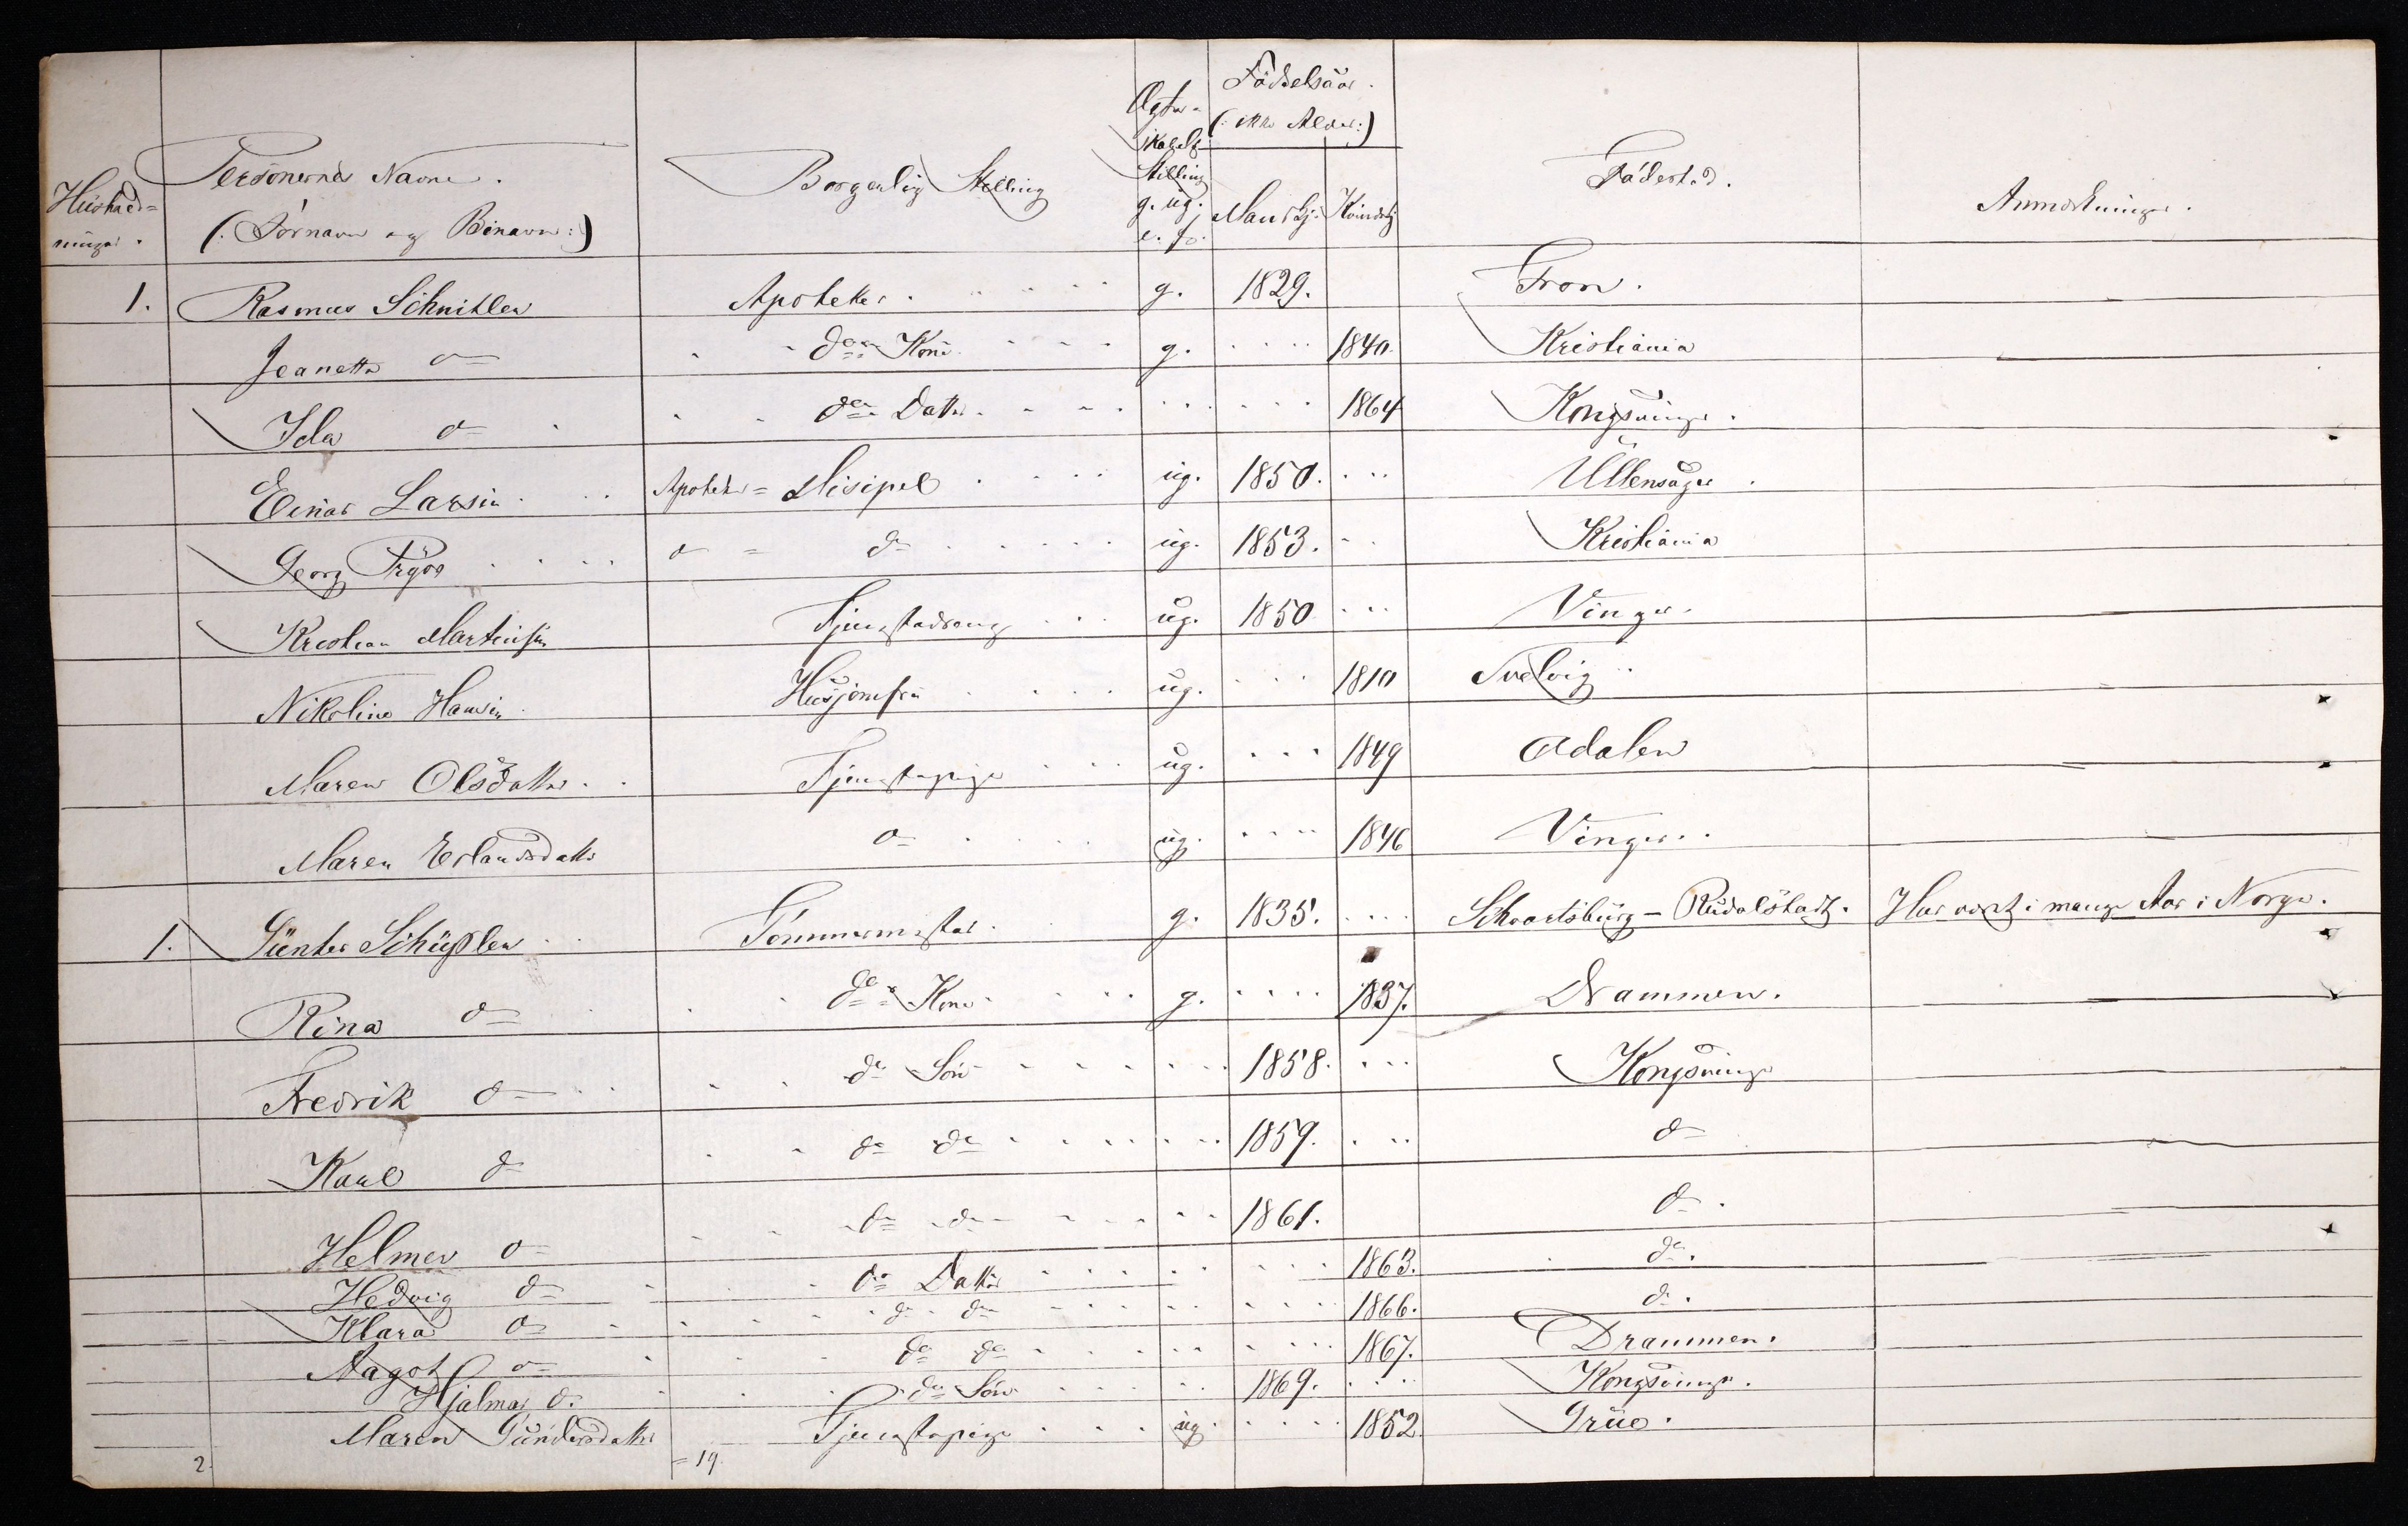 Hushold=
ninger.
Personernes Navne.
(: Fornavn og Binavn :)
Borgerlig Stilling
Ægte-
skabel:
Stilling
g. ug.
e. f.
Fødselsaar.
(: ikke Alder :)
Mandkj.
Kvindkj
Fødested.
Anmærkninger.
1. Rasmus Schnitler Apotheker. g. 1829. Fron.
Jeanette do ds. Kone g. 1840. Kristiania
Ida do ds. Datter 1864 Kongsvinger.
Einar Larsen Apotheker= Disipel ug. 1850. Ullensager.
Georg do = do ug. 1853. Kristiania
Kristian Martinsen Tjenestedreng ug. 1850 Vinger.
Nikoline Hansen Husjomfru ug. 1810 Svelvig
Maren Olsdatter Tjenestepige ug. 1849 Adalen
Maren Erlandsdatter do ug. 1846 Vinger.
1. Günter Schüßler Tømmermester g. 1835. Schvartsburg - Rudolstadt. Har vært i mange Aar i Norge.
Rina do ds. Kone g. 1837. Drammen.
Fredrik do ds. Søn 1858. Kongsvinger
Karl do ds. do 1859. do
Helmer do ds. do 1861. do.
Hedvig do ds. Datter 1863. do.
Klara do ds. do 1866. do.
Dagot do ds. do 1867. Drammen.
Hjalmar do. ds. Søn 1869. Kongsvinger.
Maren Gundersdatter Tjenestepige ug. 1852 Grue.
2. = 19.